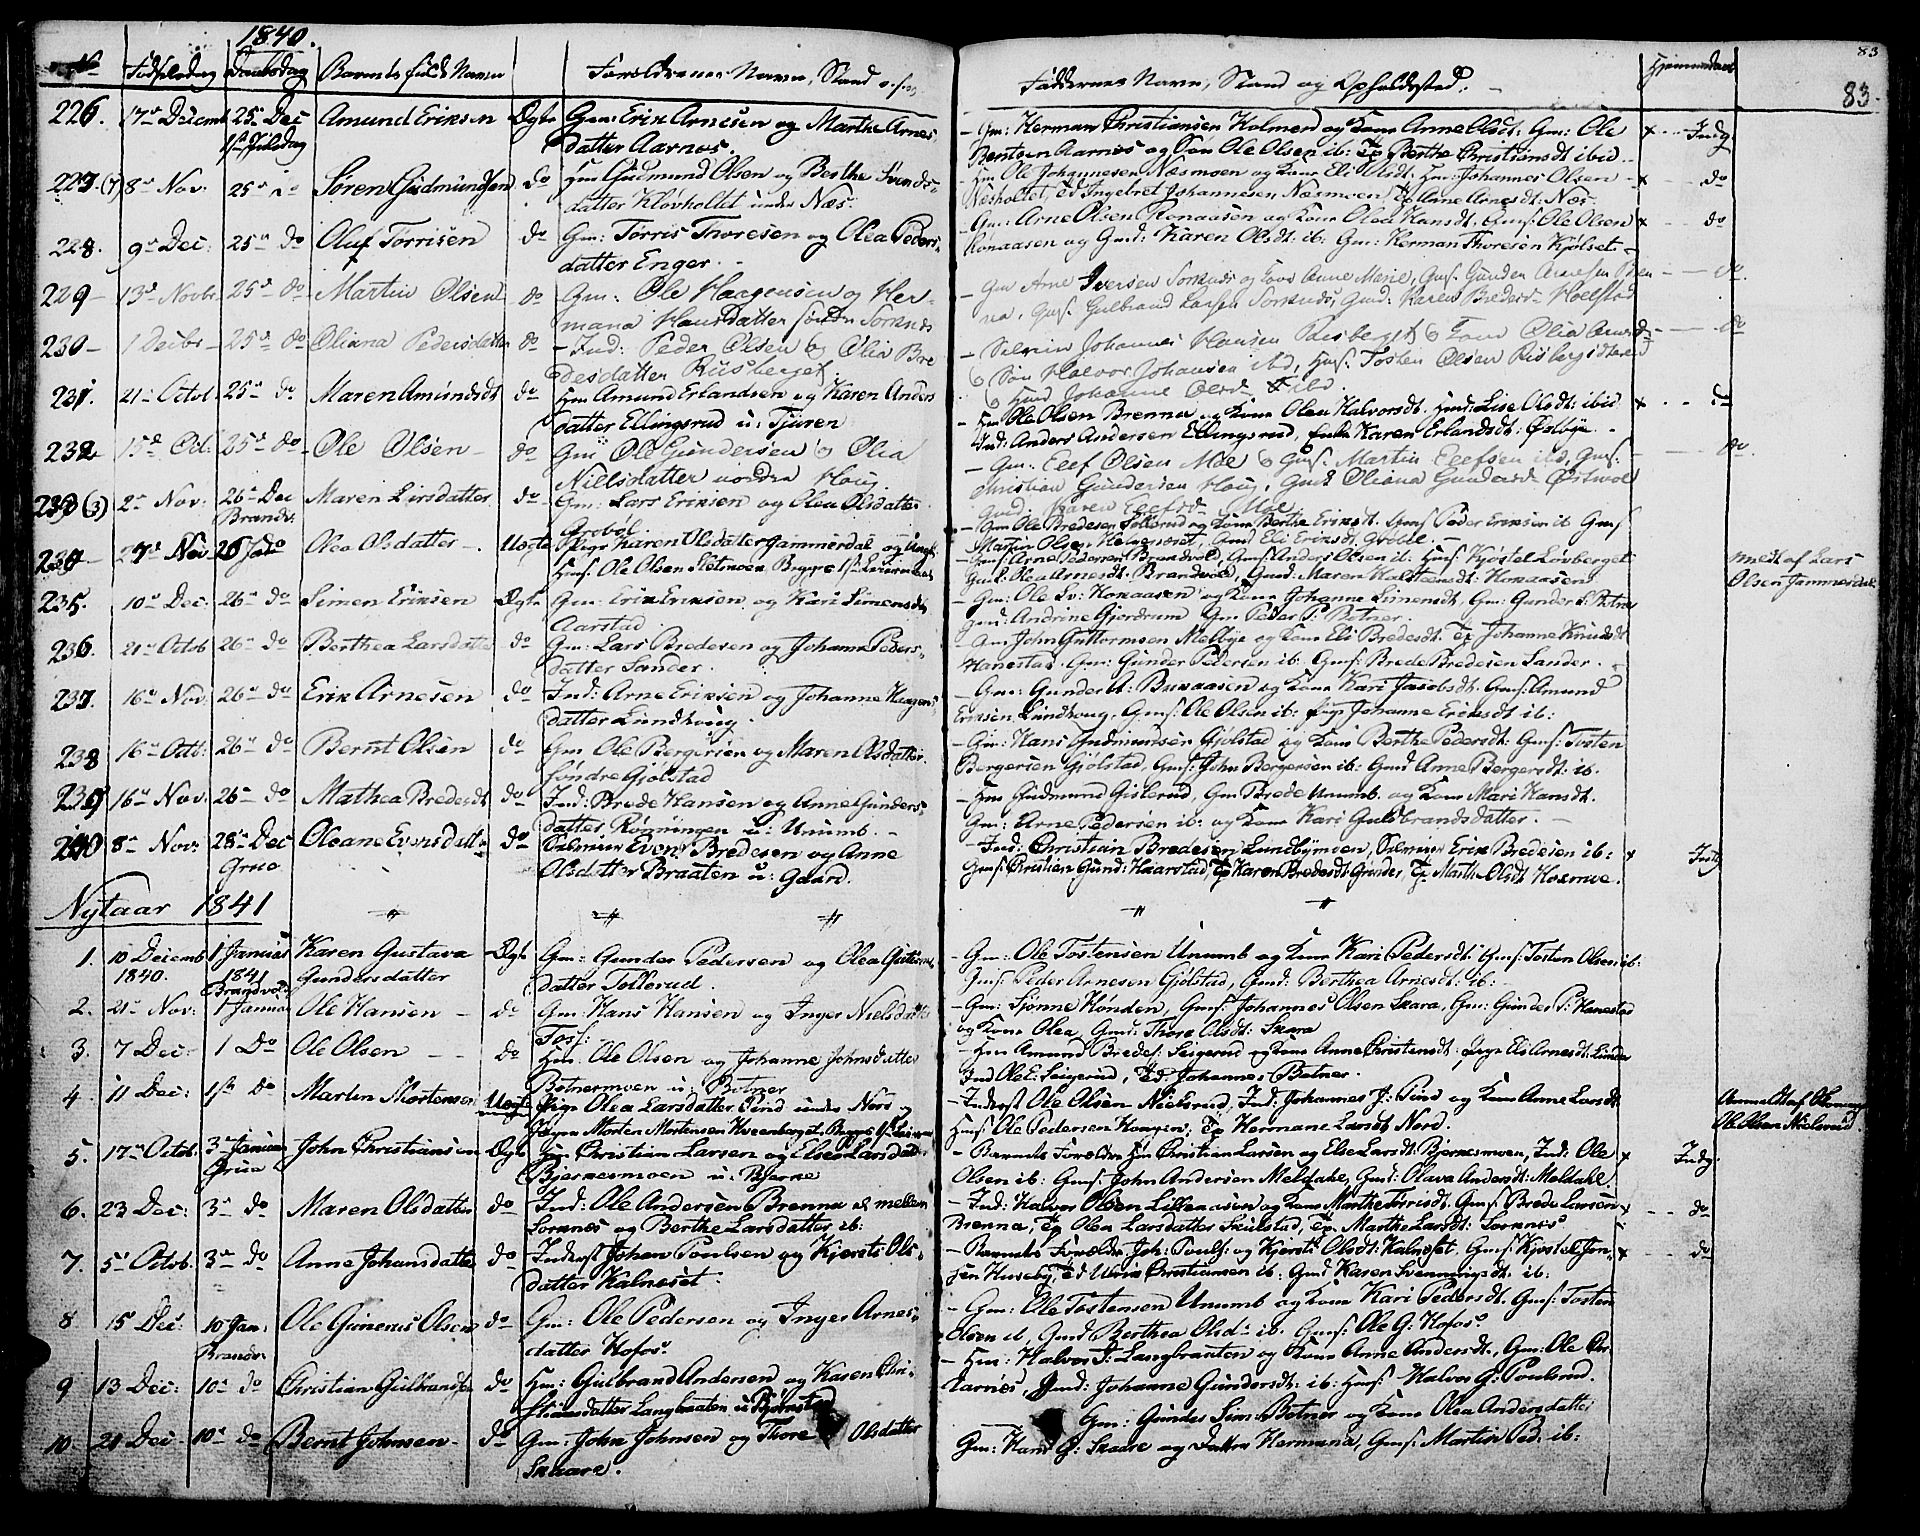 1840.
No Fødselsdag Daabsdag Barnets fulde Navn Forældrenes Navn, Stand o.s.v.
226. 17de Decemb 25. Dec Amund Eriksen Ægte Gm: Erik Arnesen og Marthe Arnes
1ste Juledag datter Aarnæs.
227. (7) 8de Nov: 25de do Søren Gudmundsen do Hm Gudmund Olsen og Berthe Svends
datter Kløvholtet under Næs.
228. 9de Dec: 25de do Oluf Torrisen do Gm: Torris Thoresen og Olea Peders
datter Enger.
229 13de Novbr 25de do Martin Olsen do Gm: Ole Haagensen og Her-
mana Hansdatter søndre Sorknæs
230 1 Decbr 25de do Oliana Pedersdatter do Ind: Peder Olsen & Olia Bre
desdatter Riisberget.
231. 21de Octob 25de do Maren Amundsdt do Hm Amund Erlandsen og Karen Anders
datter Ellingsrud u: Tjuren
232 15de Oct: 25de do Ole Olsen do Gm Ole Gundersen & Olea
Nielsdatter nordre Haug.
233 (3) 2de Nov: 26de Dec Maren Larsdatter do Gm: Lars Eriksen og Olea Olsdatter
Brandv: Grobøl.
234 27de Nov 26 do Olea Olsdatter Uægte Pige Karen Olsdatter Jammerdal og Ungk:
Huusf. Ole Olsen Sletmoen. Begges 1ste Leiermaal
235. 10de Dec: 26de do Simen Eriksen Ægte Gm: Erik Eriksen og Kari Simensdt
Aarstad
236. 21de Octob 26de do Berthea Larsdatter do Gm: Lars Bredesen og Johanne Peders-
datter Sander.
237. 16de Nov: 26de do Erik Arnesen do Ind: Arne Eriksen og Johanne Haagens
datter Lundhoug.
238 16de Oct: 26de do Bernt Olsen do Gm Ole Bergersen og Maren Olsdatter
søndre Gjølstad
239 16de Nov. 26de do Mathea Bredesdt do Ind: Brede Hansen og Anne Gunders
datter, Rønningen u: Unumb.
240 8de Nov: 28de Dec Oleane Evensdatter do Selveier Even Bredesen og Anne
Grue Olsdatter Braaten u: Gaard.
Nytaar 1841
1. 10 Decemb 1 Januar Karen Gustava Ægte Gm: Gunder Pedersen og Olea Guttorms
1840. 1841 Gundersdatter datter Tollerud.
Brandvold
2. 21de Nov: 1 Januar Ole Hansen do Gm: Hans Hansen og Inger Nielsdatter
Fosf:
3. 7 Dec: 1 Do Ole Olsen do Hm: Ole Olsen og Johanne Johnsdatter
Botnermoen u: Botner
4. 11 Dec: 1ste Do Martin Mortensen Uægte Pige Olea Larsdatter Pind under Nord og
Morten Mortensen Kveenberget. Begges 1ste Leierm
5. 17de Octob. 3de Januar John Christiansen Ægte Hm: Christian Larsen og Else Larsdatter
Grue Bjerkesmoen u: Bjerke
6. 23 Dec: 3de do Maren Olsdatter do Ind: Ole Andersen Brenna el mellem
Sorknes og Berthe Larsdatter ib:
7. 5te Octob. 3de do Anne Johansdatter do Inderst Johan Poulsen og Kjersti Ols-
datter Kalneset.
8 15 Dec: 10 Jan: Ole Gunerius Olsen do Gm: Ole Pedersen og Inger Arnes-
Brandv: datter Hofos.
9 13 Dec: 10de do Christian Gulbrandsen do Hm: Gulbrand Andersen og Karen Chri-
stiansdatter Langbraaten u: Bjørnstad
10. 21 Dec: 10de do Bernt Johnsen do Gm: John Johnsen og Thore Olsdatter
Skaare.
83
Faddernes Navn, Stand og Opholdssted. Hjemmedøbt 83.
Gm: Herman Christiansen Holmen og Kone Anne Olsdt: Gm: Ole x Indg
Berntsen Aarnæs og Søn Ole Olsen ib: Tp Berthe Christiansdt ibid
Hm Ole Johannesen Næsmoen og Kone Eli Olsdt: Hm: Johannes Olsen x do
Næsholtet, Td Ingebret Johannesen Næsmoen, Tp Anne Arnesdt: Næs.
Gm: Arne Olsen Konaasen og Kone Olea Hansdt: Gmf: Ole Olsen x do
Konaasen og Gmd: Karen Olsdt: ib: Gm: Herman Thoresen Kjølset.
Gm Arne Iversen Sorknæs og Kone Anne Marie, Gmf. Gunder Arnesen Bren do
na, Gmf. Gulbrand Larsen Sorknæs, Gmd: Karen Bredesdr Holstad
Selveier Johannes Hansen Riisberget & Kone Olia Arnesdr do
& Søn Halvor Johansen ibd, Huf: Tosten Olsen Risbergsætren
& Hmd Johanne Olsdr ibd.
Hm Ole Olsen Brenna og Kone Olea Halvorsdt. Hmd: Lise Olsdt: ibid x do
Ind: Anders Andersen Ellingsrud, Enke Karen Erlandsdt: Østbye.
Gm: Elef Olsen Moe & Gmf. Martin Elefsen ibd, Gmf. do
Christian Gundersen Haug, Gmd Oleana Gundersdr Østvold
Gmd: Karen Elefsdr Moe.
Gm Ole Bredesen Tollerud og Kone Berthe Eriksdt. Gmf Peder Eriksen ib Gmf
Martin Olsen Helgenæset, Gmd Eli Eriksdt: Grobøl.
Gmf: Arne Pedersen Brandvold, Gmf: Anders Olsen ib: Husf: Kjostel Løvberget medt af Lars
Gmd. Olea Arnesdt: Brandvold, Gmd: Maren Halstensdt: Kokaasen Olsen Jammerdal
Gm: Ole Iv: Kokaasen og Kone Johanne Simensdt, Gm: Gunder S: Botner
Gmd: Andrine Gjerdrum Gm Peder P: Botner.
Gm John Guttormsen Melbye og Kone Eli Bredesdt: Tp Johanne Knudsdt
Hanestad. Gm: Gunder Pedersen ib: Gmf: Brede Bredesen Sander.
Gm: Gunder A: Bukaasen og Kone Kari Jacobsdt. Gmf: Amund
Eriksen Lundhoug, Gmf: Ole Olsen ib: Pige Johanne Eriksdt ib:
Gm: Hans Gudmundsen Gjølstad og Kone Berthe Pedersdt: Gmf: Tosten
Bergersen Gjølstad, Gmf: John Bergersen ib: Gmd Anne Bergersdt: ib.
Hm Gudmund Gislerud, Gm Brede Unumb. og Kone Mari Hansdt.
Gm: Arne Pedersen ib: og Kone Kari Guldbrandsdatter.
Ind: Christian Bredesen Lundbymoen, Selveier Erik Bredesen ib: x Indg
Gmf: Christien Gund: Haarstad, Tp Karen Bredesdt: Grinder, Tp. Marthe Olsdt Holmue.
Gm: Ole Tostensen Unumb og Kone Kari Pedersdt: Gmf: Tosten Olsen ib:
Gmf: Peder Arnesen Gjølstad, Gmd: Berthea Arnesdt: ib:
Gm: Sjønne Hønden, Gmf: Johannes Olsen Skara, Gm: Gunder P: Hanestad
og Kone Olea, Gmd: Thore Olsdt: Skara
Hm Amund Bredes: Seigerud og Kone Anne Christensdt: Pige Eli Arnesdt: Lunder
Ind Ole E. Seigerud, Td: Johannes Botner.
Inderst Ole Olsen Nielsrud, Ind: Johannes J: Pind og Kone Anne Larsdt
Husf: Ole Pedersen Haugen, Tp Hermane Larsdt Nord. Ole Olsen Nielsrud
Barnets Forældre Hm Christian Larsen og Else Larsdt: Bjerkesmoen, Ind: Ole x Indg.
Olsen ib: Gmf: John Andersen Meldahl, Gmd: Olava Andersdt: Meldahl.
Ind: Halvor Olsen Lilleaasen og Kone Marthe Torrisdt. Gmf. Brede Larsen x do
Brenna, Tp Olea Larsdatter Skulstad, Tp. Marthe Larsdt: Sorknes
Barnets Forældre Joh: Pouls: og Kjersti Olsdt: Kalneset, Gmf: Kjostel Jen- x do
sen Huseby, Td Ulrik Christiansen ib: Gmd Karen Svenningsdt: ib:
Gm: Ole Tostensen Unumb og Kone Kari Pedersdt. Gmf: Tosten
Olsen ib, Gmd Berthea Olsdr ib. Gmf: Ole G: Hofos.
Hm: Halvor J: Langbraaten og Kone Anne Andersdt., Gm: Ole Chr
Aarnes, Gmd: Johanne Gundersdt: ib: Husf: Halvor G: Poulsrud.
Gm: Gunder Sim: Botner og Kone Olea Andersdatter
Gm: Hans G: Skaare og Datter Hermana, Gmf: Martin Ped: ib: